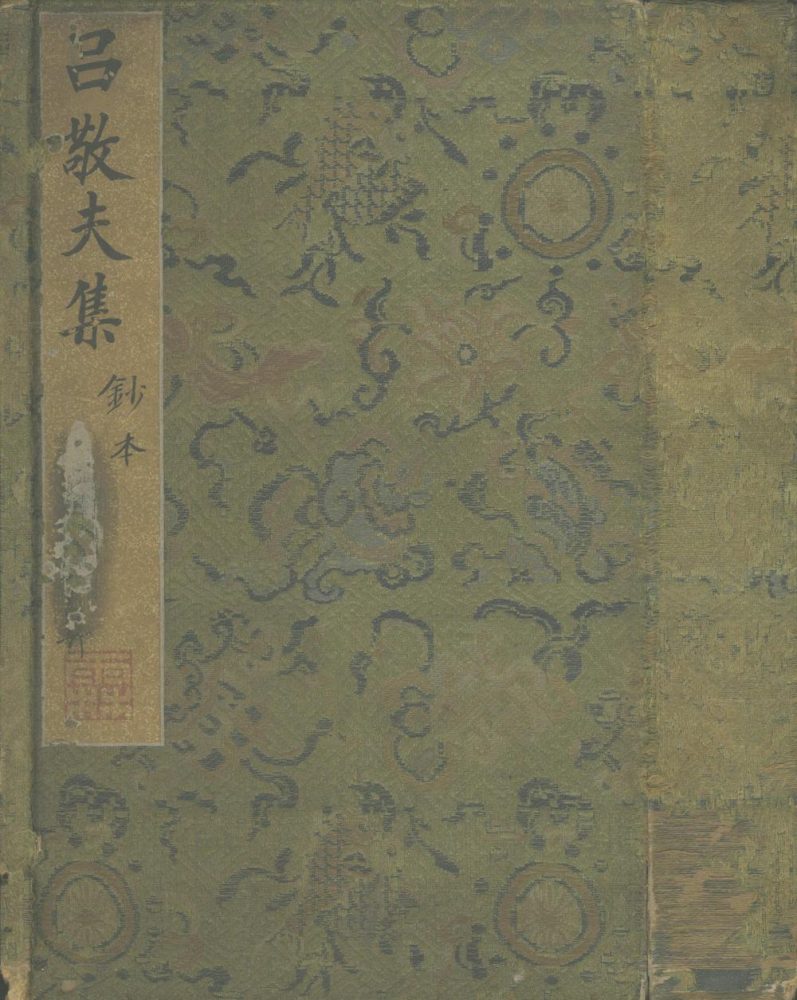 呂敬夫集
鈔本